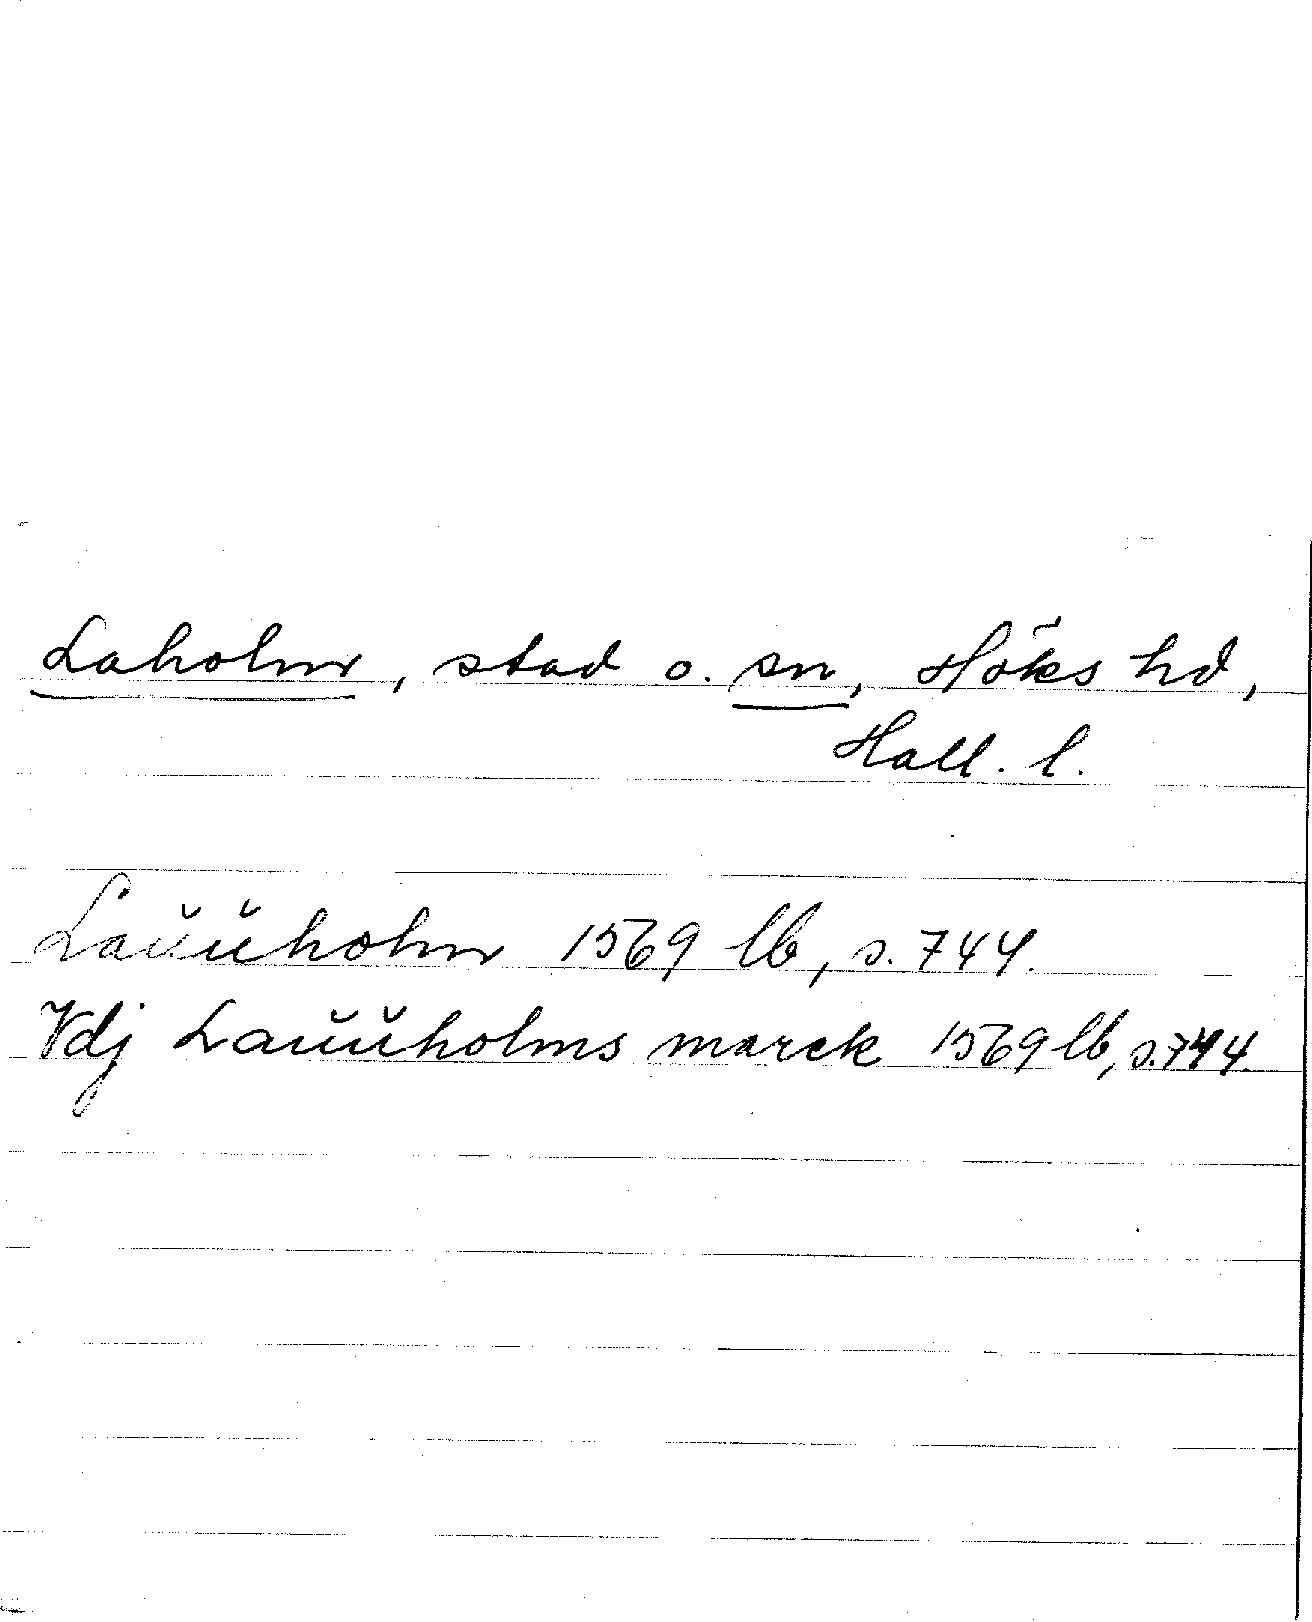 Laholm, stad o. sn, Höks hd,
Hall. l.
Laŭŭholm 1569 lb, s. 744.
Vdj Laŭŭholms marck 1569 lb, s. 744